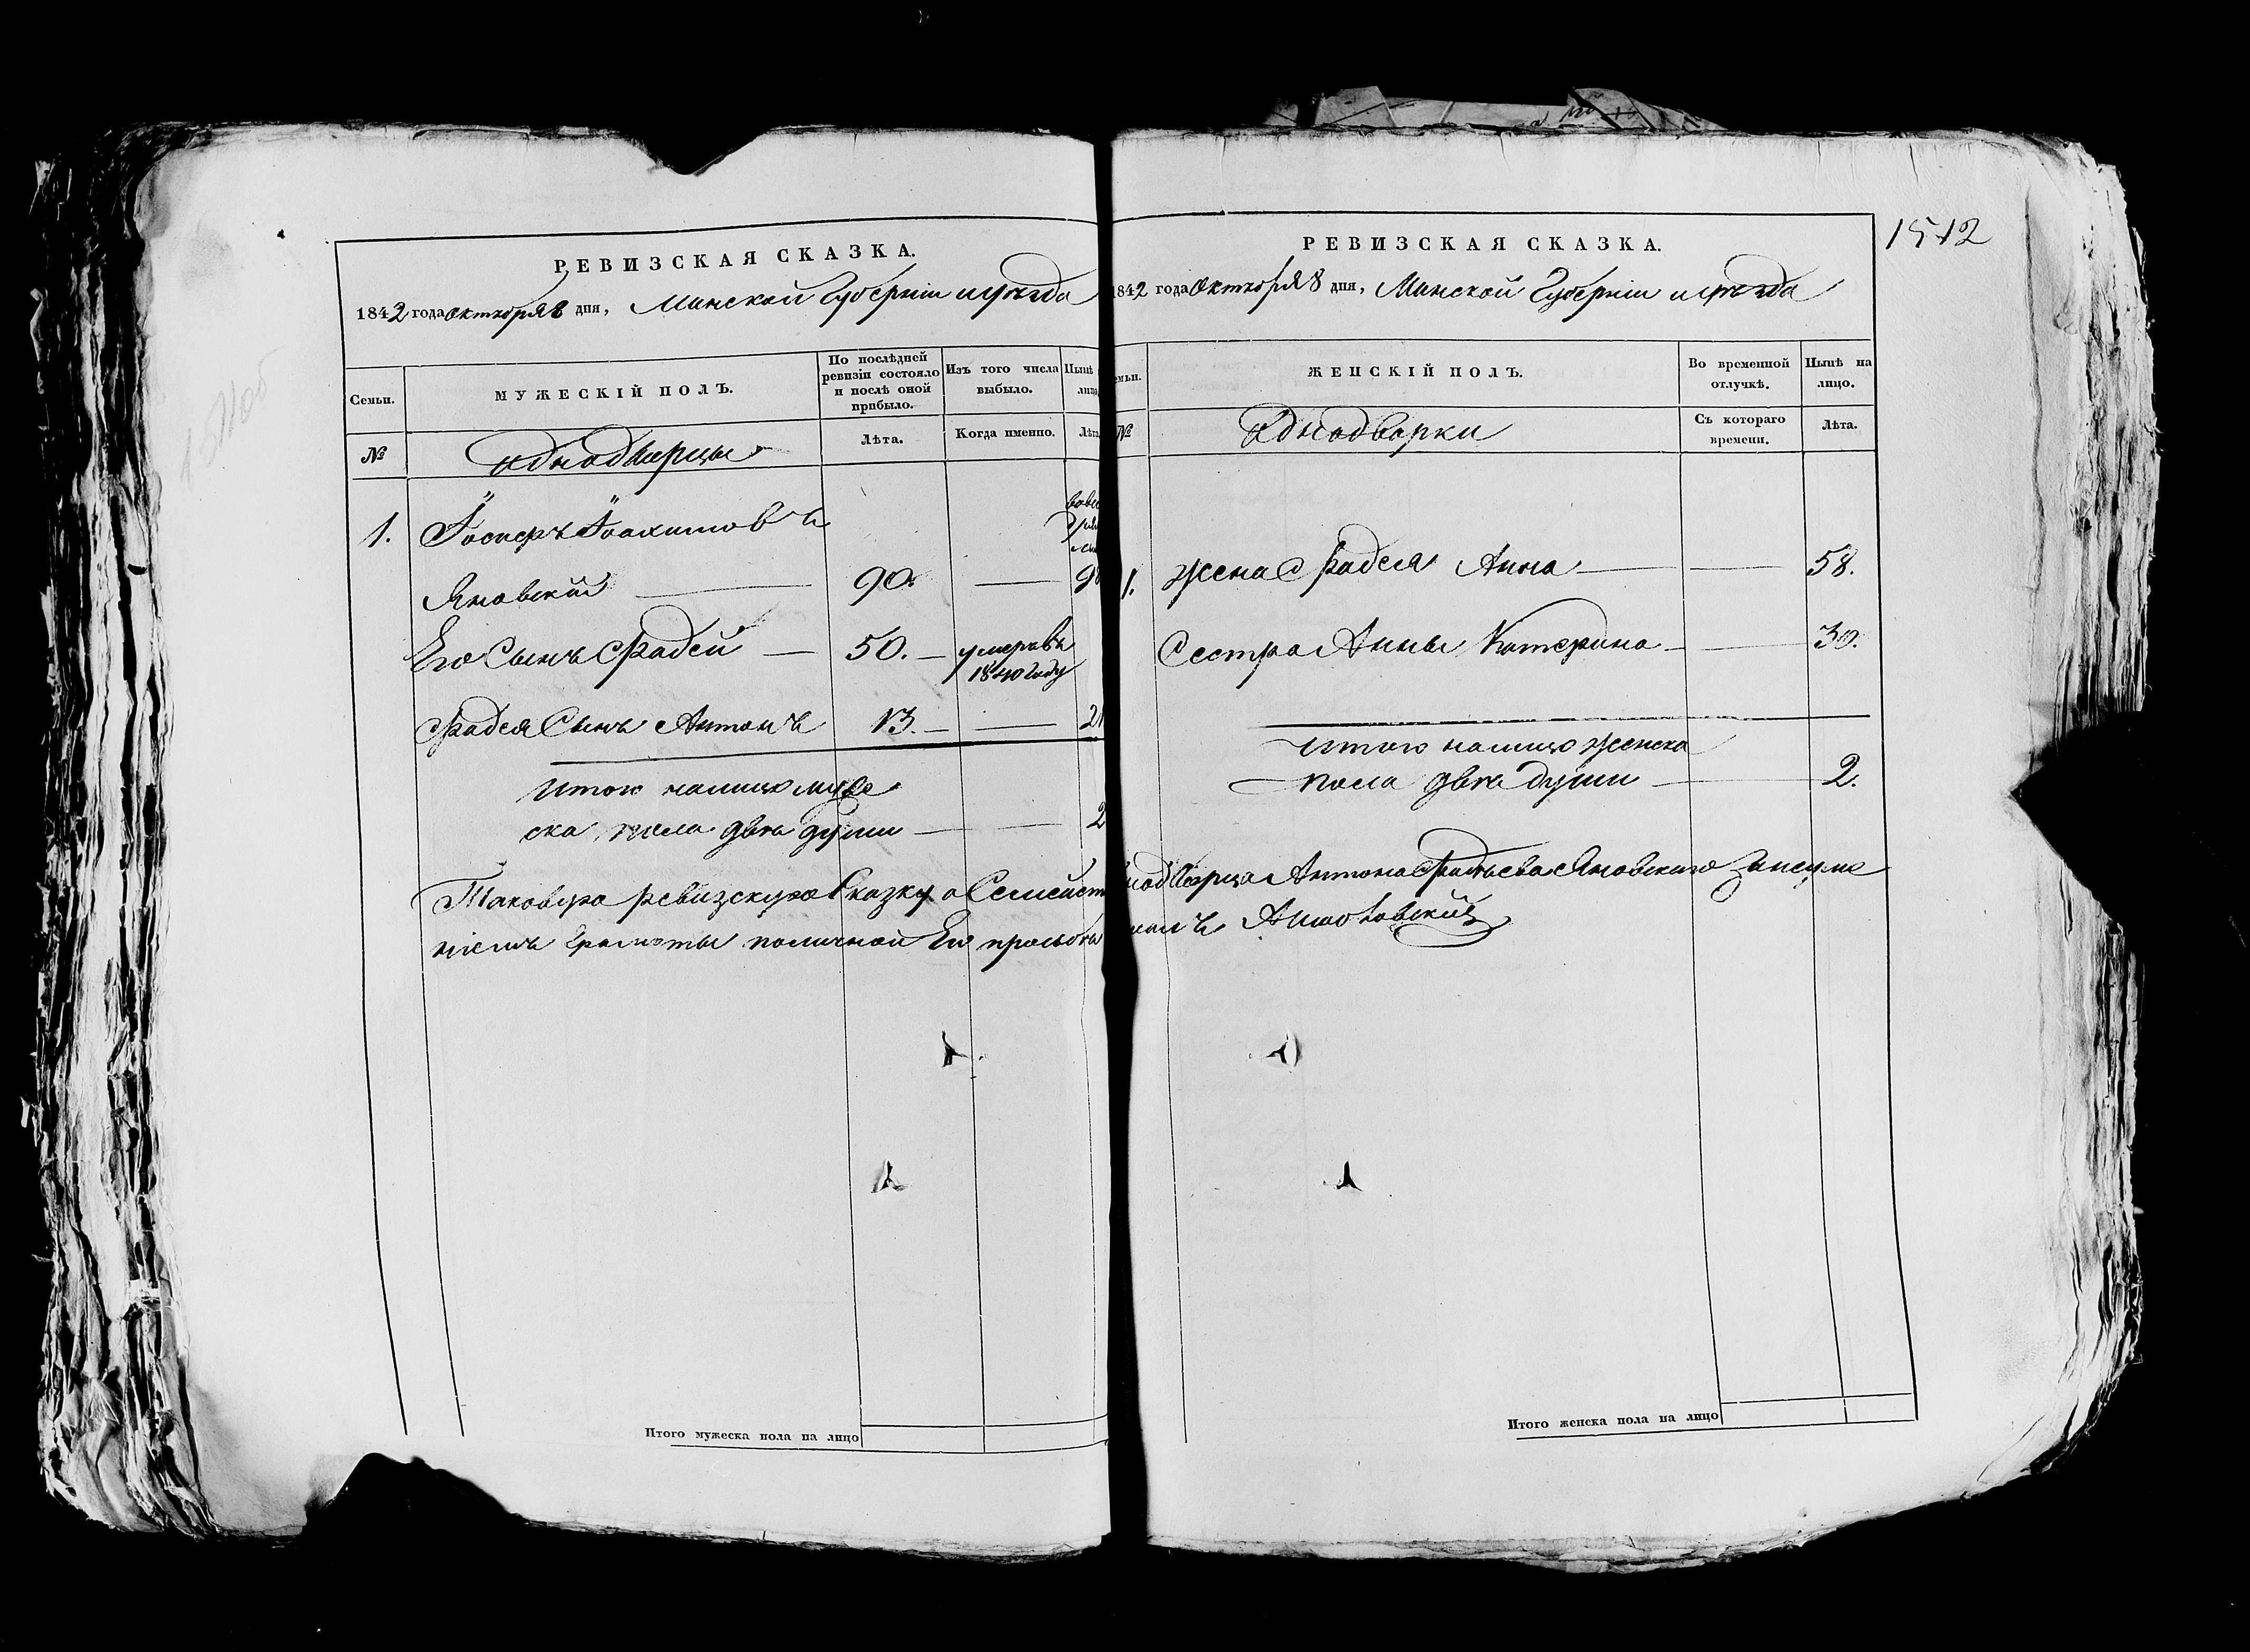 РЕВИЗСКАЯ СКАЗКА.
1842 года Октября 8 дня, Минской Губерніи и уѣзда
Семьи.
МУЖЕСКІЙ ПОЛЪ.
По послѣдней ревизіи состояло и послѣ оной прибыло.
Изъ того числа выбыло.
Нынѣ лицо
№
Однодворцы
Лѣта.
Когда именно.
Лѣта
1. Іосифъ Іоахимовъ
Яновскій 90.
Его Сынъ Фадей 50. умеръ въ
1840 году
Фадея Сынъ Антонъ 13. 21
Итого налицо муже
ска пола двѣ души 2
Таковую ревизскую Сказку о Семейст
ніемъ Грамоты поличной Его прозьбы
Итого мужеска пола на лицо
1512
РЕВИЗСКАЯ СКАЗКА.
1842 года Октября 8 дня, Минской Губерніи и уѣзда
ЖЕНСКІЙ ПОЛЪ.
Во временной отлучкѣ.
Нынѣ на лицо.
№
Однодворки
Съ котораго времени.
Лѣта.
1. Жена Фадея Анна 58.
Сестра Анны Катерина 30.
Итого налицо женска
пола двѣ души 2.
нодворца Антона Фадѣева Яновскаго за неуме
Итого женска пола на лицо